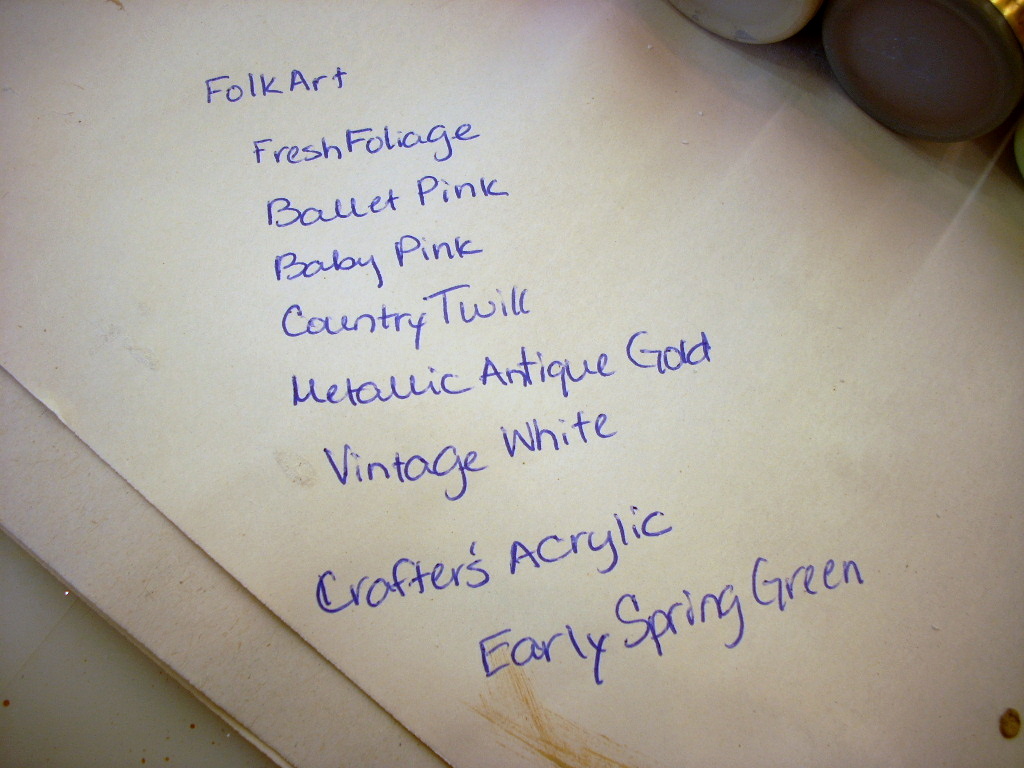 FolkArt
Fresh Foliage
Ballet Pink
Baby Pink
Country Twill
Metallic Antique Gold
Vintage White
Crafter's Acrylic
Early Spring Green